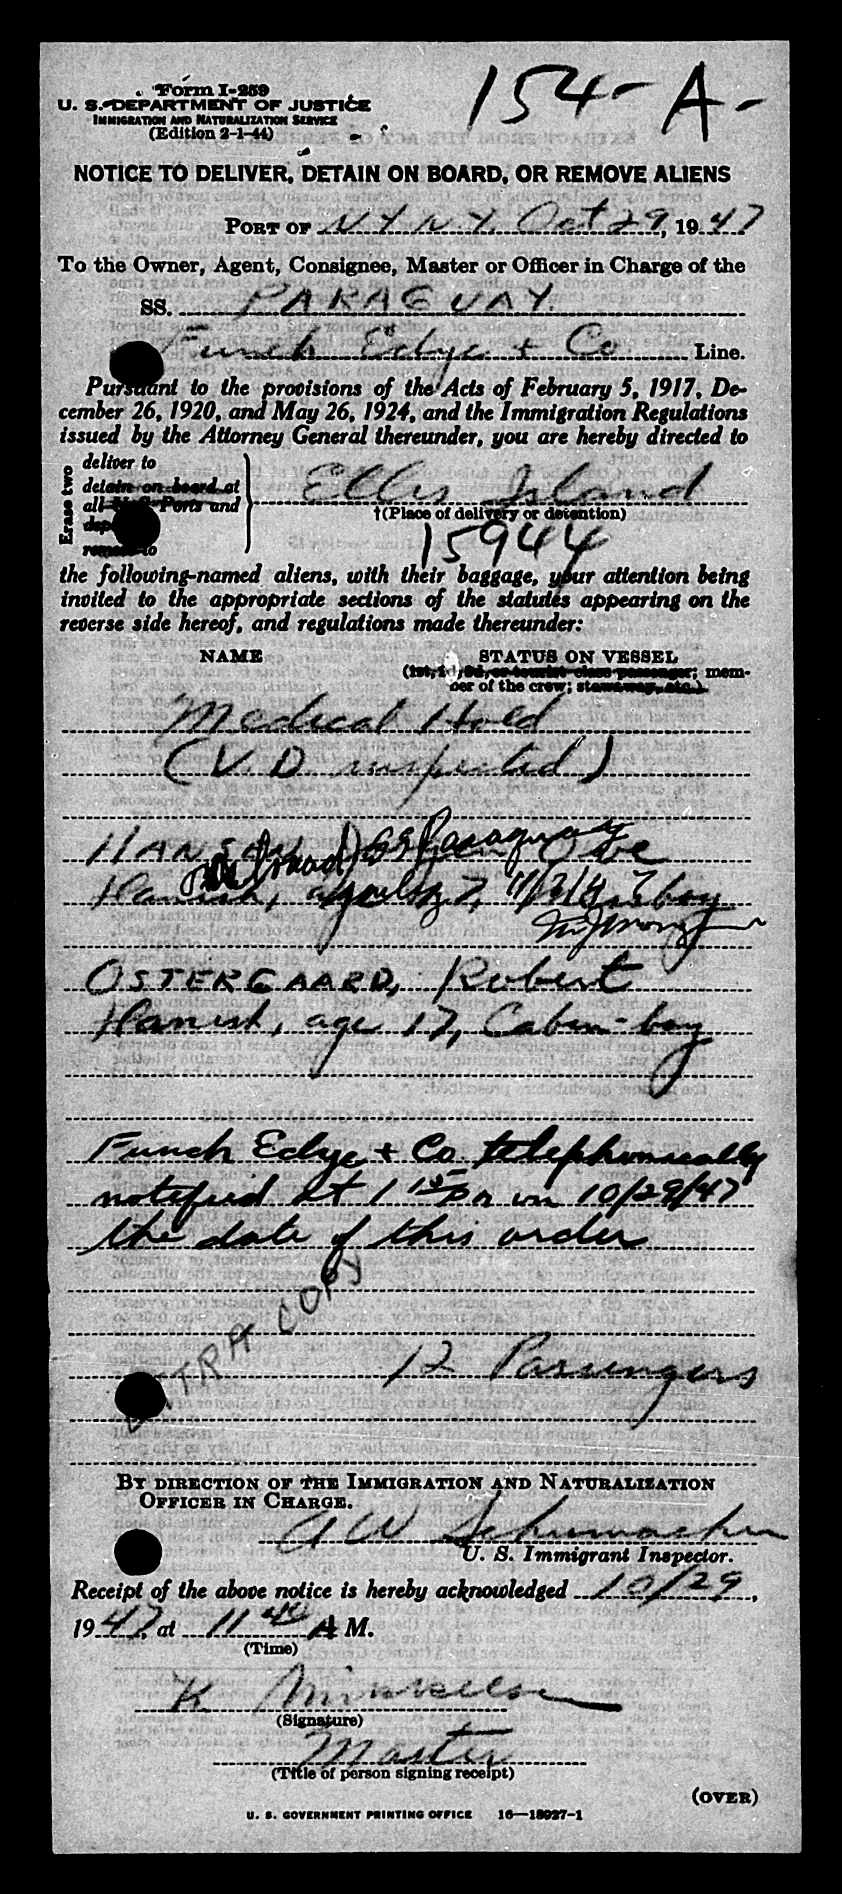 Form I-259
154-A-
U. S. DEPARTMENT OF JUSTICE
IMMIGRATION AND NATURALIZATION SERVICE
(Edition 2-1-44)
NOTICE TO DELIVER, DETAIN ON BOARD, OR REMOVE ALIENS
PORT OF N Y N Y Oct 29, 1947
To the Owner, Agent, Consignee, Master or Officer in Charge of the
SS. PARAGUAY.
Funch Edye + Co Line.
Pursuant to the provisions of the Acts of February 5, 1917, De-
cember 26, 1920, and May 26, 1924, and the Immigration Regulations
issued by the Attorney General thereunder, you are hereby directed to
Erase two
deliver to
detain on board at
all U. S. Ports and
remove to
Ellis Island
†(Place of delivery or detention)
15944
the following-named aliens, with their baggage, your attention being
invited to the appropriate sections of the statutes appearing on the
reverse side hereof, and regulations made thereunder:
NAME STATUS ON VESSEL
(1st, 2d, 3d, or tourist class passenger; mem-
ber of the crew; stowaway, etc.)
Medical Hold
(V.D suspected)
HANSEN, Ove
SS Paraguay
Danish, age 17, boy
11/3/47
OSTERGAARD, Robert
Danish, age 17, Cabin-boy
Funch Edye + Co telephonically
notified at 1 15 P m on 10/29/47
the date of this order
EXTRA COPY
12 Passengers
BY DIRECTION OF THE IMMIGRATION AND NATURALIZATION
OFFICER IN CHARGE.
A W Schumacher
U. S. Immigrant Inspector.
Receipt of the above notice is hereby acknowledged 10/29,
1947, at 11 40 A M.
(Time)
K Mikkelsen
(Signature)
Master
(Title of person signing receipt)
(OVER)
U. S. GOVERNMENT PRINTING OFFICE 16—18927-1